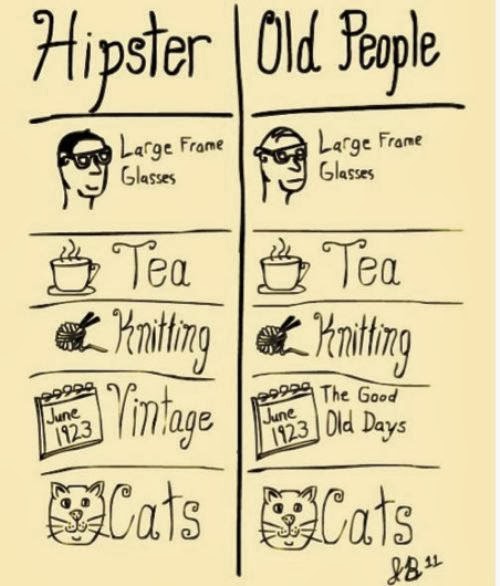 Hipster
Large Frame
Glasses
Tea
Knitting
June
1923
Vintage
Cats
Old People
Large Frame
Glasses
Tea
Knitting
June
1923
The Good
Old Days
Cats